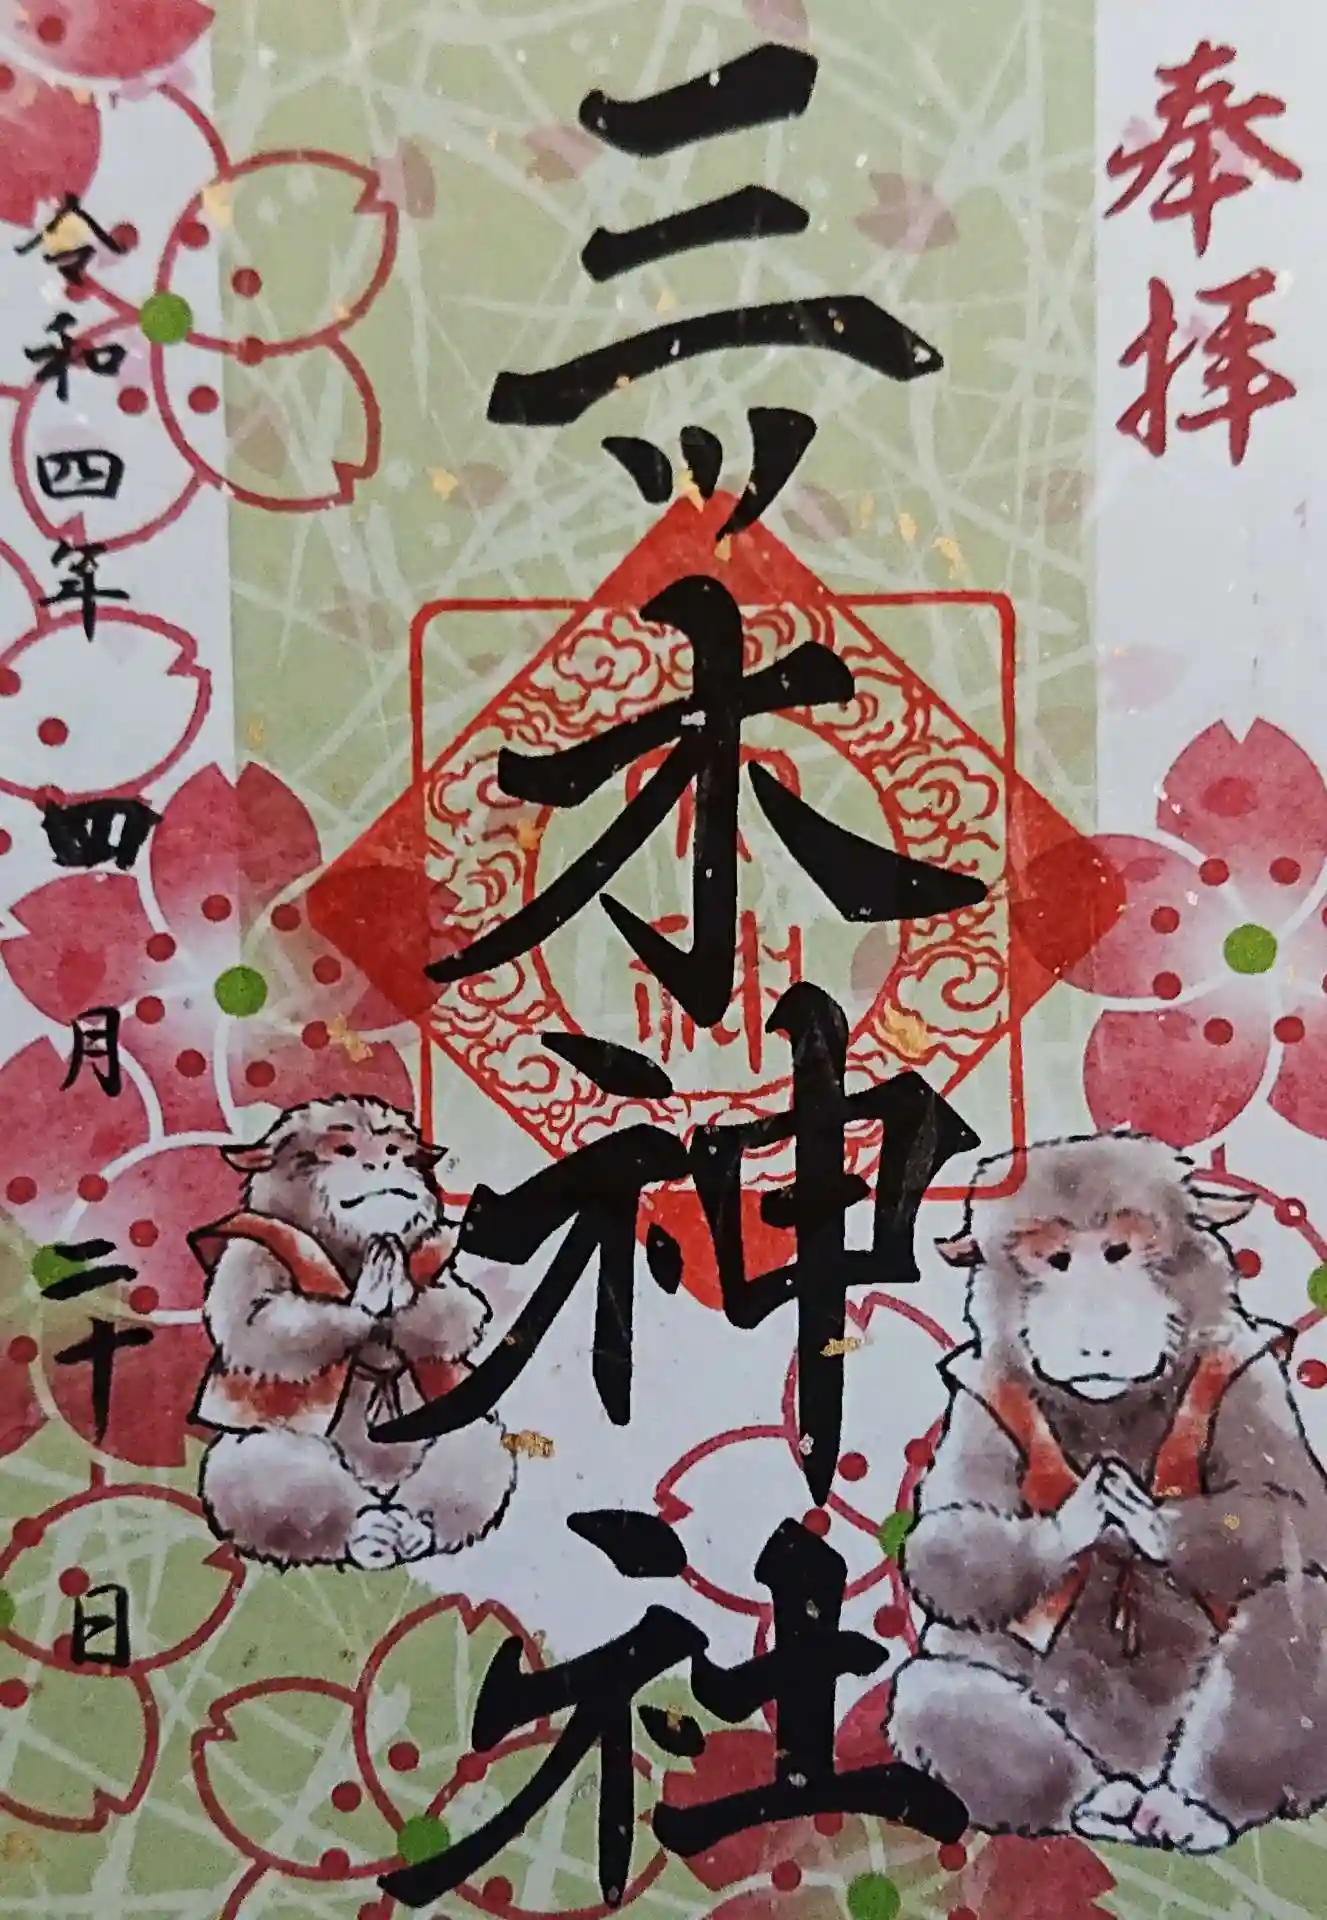 奉拝
三ツ木神社
令和四年四月二十日